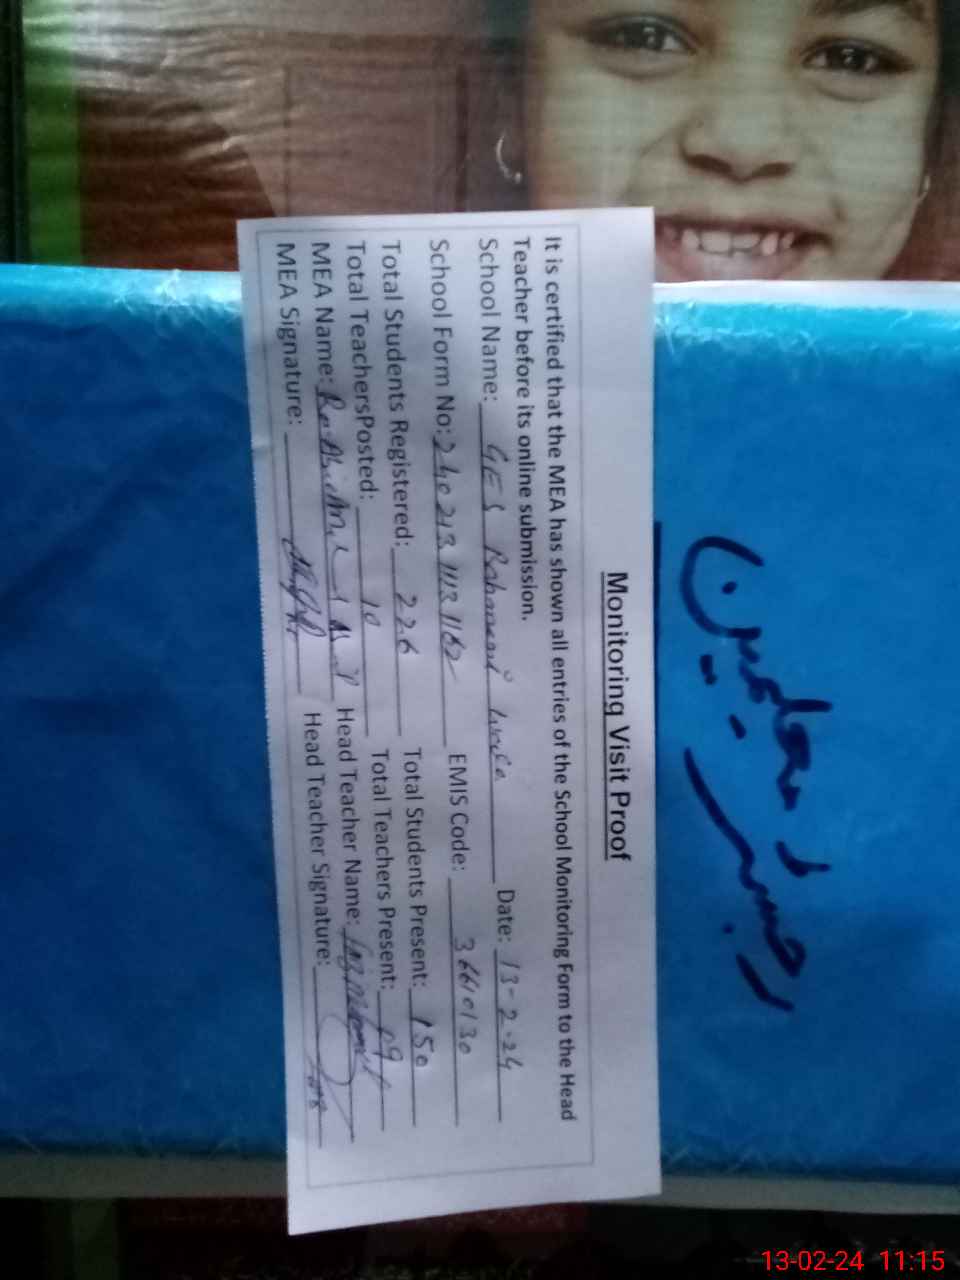 Monitoring Visit Proof
It is certified that the MEA has shown all entries of the School Monitoring Form to the Head
Teacher before its online submission.
School Name: GES Date: 13-2-24
School Form No: EMIS Code: 36610130
Total Students Registered: 226 Total Students Present: 150
Total TeachersPosted: 10 Total Teachers Present: 09
MEA Name: Head Teacher Name:
MEA Signature: Head Teacher Signature:
رجسٹر معلمین
13-02-24 11:15